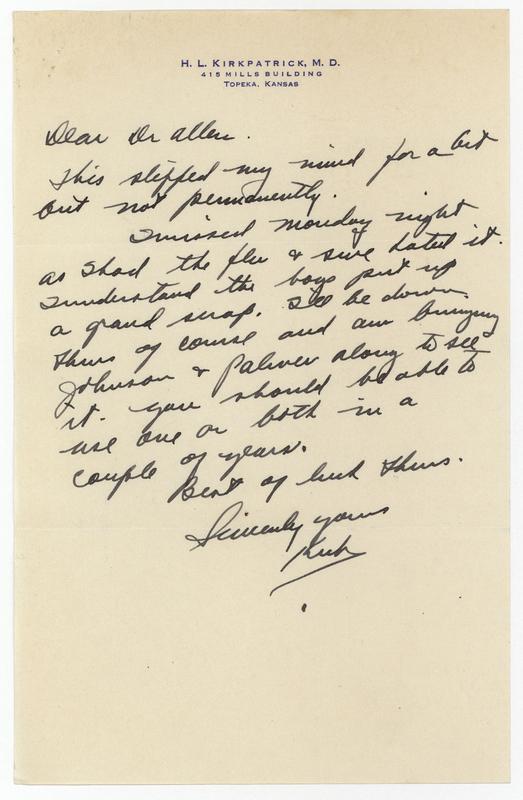 H. L. KIRKPATRICK, M. D.
415 MILLS BUILDING
TOPEKA, KANSAS
Dear Dr Allen.
This slipped my mind for a bit
but not permanently.
I missed Monday night
as I had the flu & sure hated it.
I understand the boys put up
a grand scrap. I'll be down
Thurs of course and am bringing
Johnson & Palmer along to see
it. You should be able to
use one or both in a
couple of years.
Best of luck Thurs.
Sincerely yours
Kirk